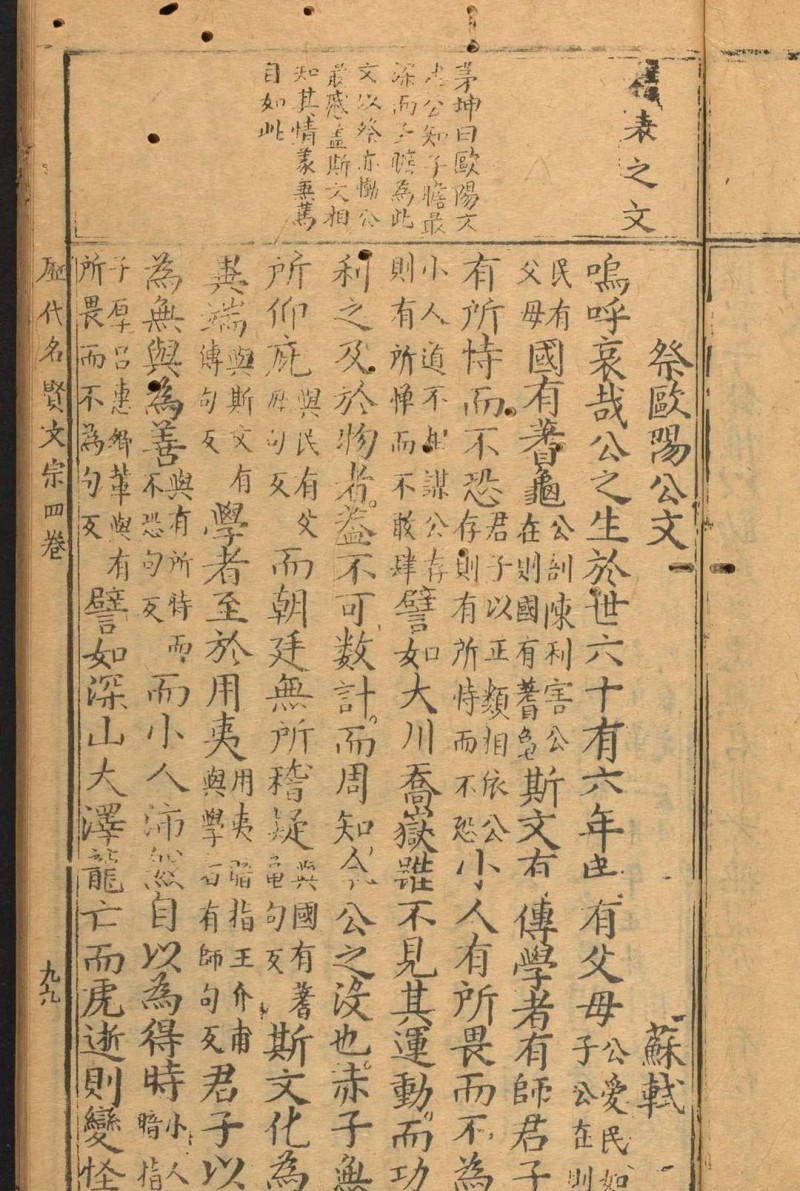 表之文
茅坤曰歐陽文
忠公知子瞻最
深而子瞻為此
文以祭亦慟公
最感盖斯文相
知其情篆無蔫
自如此
祭歐陽公文
蘇軾
嗚呼哀哉公之生於世六十有六年民有父母公愛民如子公在則
民有父母國有蓍龜公訓陳利害公在則國有蓍龜斯文有傳學者有師君子
有所恃而不恐君子以正類相依公存則有所恃而不恐小人有所畏而不為
小人道不相謀公存則有所憚而不敢肆譬如大川喬嶽雖不見其運動而功
利之及於物者盖不可数計而周知今公之沒也赤子無
所仰庇與民有父母句反而朝廷無所稽疑與國有蓍龜句反斯文化為
異端與斯文有傳句反學者至於用夷用夷暗指王介甫與學者有師句反君子以
為無與為善與有所恃而不恐句反而小人沛然自以為得時小人暗指
子厚呂惠卿輩與有所畏而不為句反譬如深山大澤龍亡而虎逝則變怪
歷代名賢文宗四卷
九六